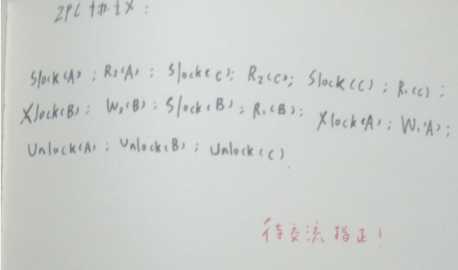 2PL 协议:
Slock(A); R2(A); Slock(C); R2(C); Slock(C); R1(C);
Xlock(B); W2(B); Slock(B); R1(B); Xlock(A); W1(A);
Unlock(A); Unlock(B); Unlock(C)
待交流指正!